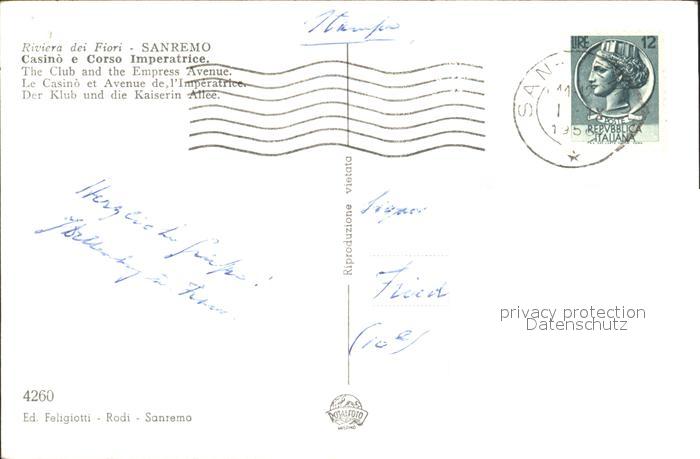 Stampe
Riviera dei Fiori - SANREMO
Casinò e Corso Imperatrice.
The Club and the Empress Avenue.
Le Casinò et Avenue de,l'Impératrice.
Der Klub und die Kaiserin Allee.
LIRE 12
SAN
11
1958
POSTE
REPVBBLICA
ITALIANA
Riproduzione vietata
Signor
Fried
privacy protection
Datenschutz
Herzliche Grüße!
4260
Ed. Feligiotti - Rodi - Sanremo